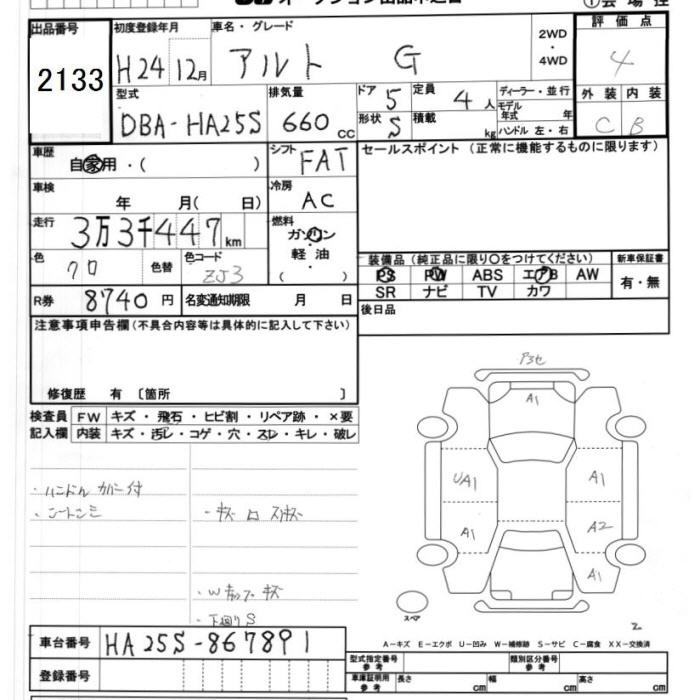 出品番号
2133
初度登録年月
H24 12月
車名・グレード
アルト G
2WD
・
4WD
評価点
4
外装 内装
C B
型式
DBA-HA25S
排気量
660 cc
ドア 5
定員 4人
形状 S
積載 kg
ディーラー・並行
モデル年式 年
ハンドル 左・右
車歴
自家用・( )
シフト
FAT
セールスポイント(正常に機能するものに限ります)
車検
年 月( 日)
冷房
AC
走行
3万3千447km
燃料
ガソリン
軽油
( )
色
クロ
色替
色コード
ZJ3
装備品(純正品に限り○をつけてください)
PS PW ABS エアB AW
SR ナビ TV カワ
新車保証書
有・無
R券 8740円
名変通知期限 月 日
後日品
注意事項申告欄(不具合内容等は具体的に記入して下さい)
修復歴 有〔箇所 〕
検査員記入欄
FW キズ・飛石・ヒビ割・リペア跡・×要
内装 キズ・汚レ・コゲ・穴・スレ・キレ・破レ
・ハンドルカバー付
・キズ
・下廻りS
A1
UA1
A1
A1
A2
A1
スペア
A-キズ E-エクボ U-凹み W-補修跡 S-サビ C-腐食 XX-交換済
車台番号 HA25S-867891
登録番号
型式指定番号 参考
類別区分番号 参考
車庫証明用 参考
長さ cm
幅 cm
高さ cm